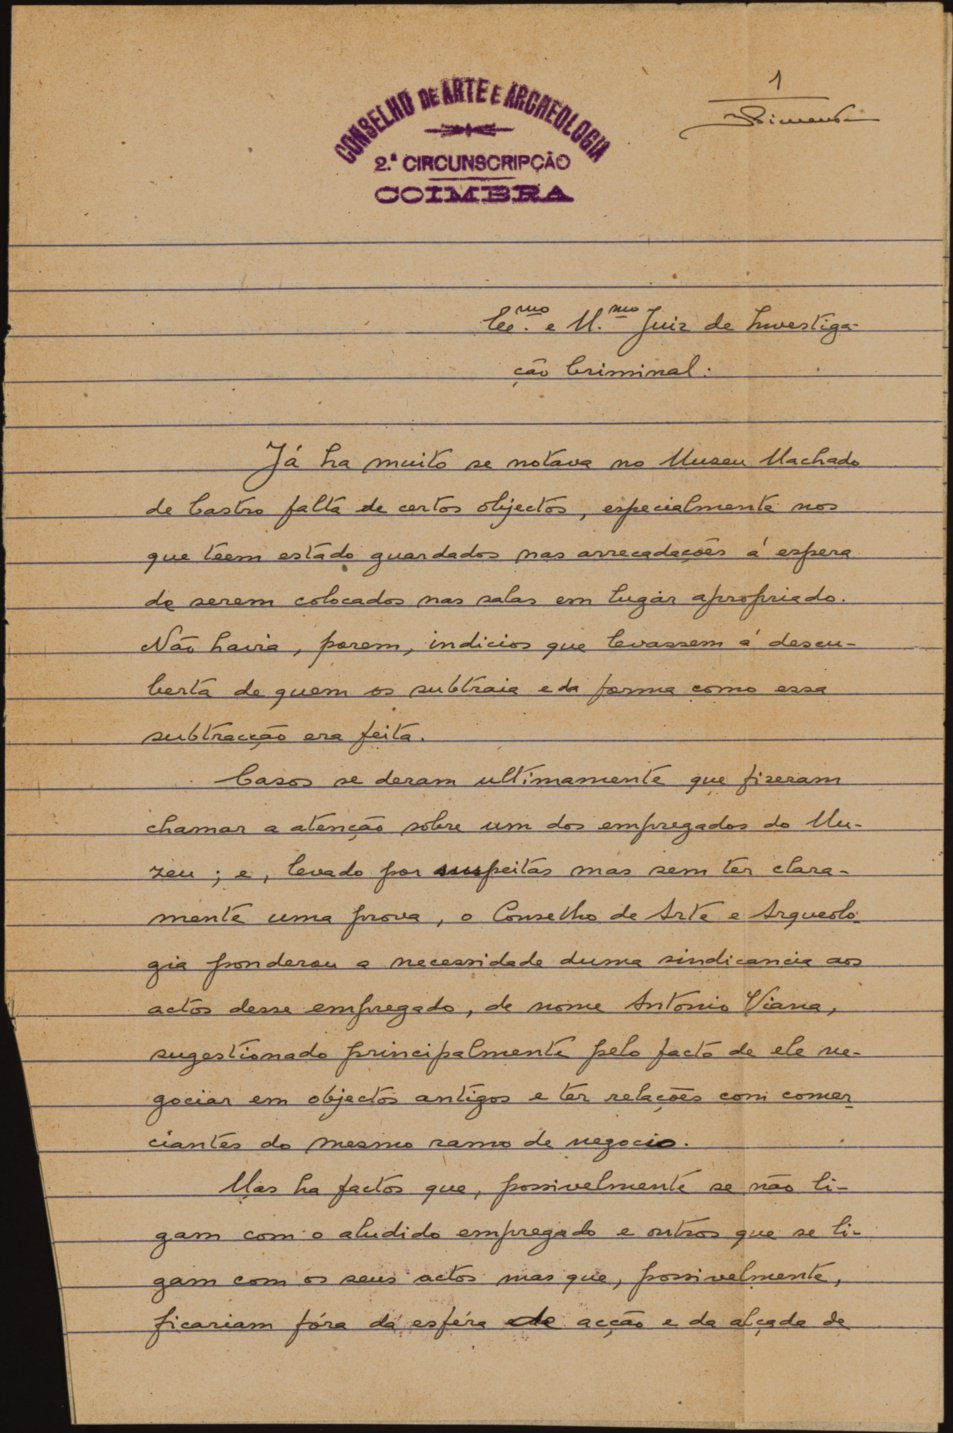 1
CONSELHO DE ARTE E ARCHEOLOGIA
2.ª CIRCUNSCRIPÇÃO
COIMBRA
Ex.mo e M.mo Juiz de Investiga-
ção Criminal:
Já ha muito se notava no Museu Machado
de Castro falta de certos objectos, especialmente nos
que teem estado guardados nas arrecadações á espera
de serem colocados nas salas em lugar apropriado.
Não havia, porem, indicios que levassem á descu-
berta de quem os subtraia e da forma como essa
subtracção era feita.
Casos se deram ultimamente que fizeram
chamar a atenção sobre um dos empregados do Mu-
zeu; e, levado por suspeitas mas sem ter clara-
mente uma prova, o Conselho de Arte e Arqueolo-
gia ponderou a necessidade duma sindicancia aos
actos desse empregado, de nome Antonio Viana,
sugestionado principalmente pelo facto de ele ne-
gociar em objectos antigos e ter relações com comer-
ciantes do mesmo ramo de negocio.
Mas ha factos que, possivelmente se não li-
gam com o aludido empregado e outros que se li-
gam com os seus actos mas que, possivelmente,
ficariam fóra da esféra de acção e da alçada de